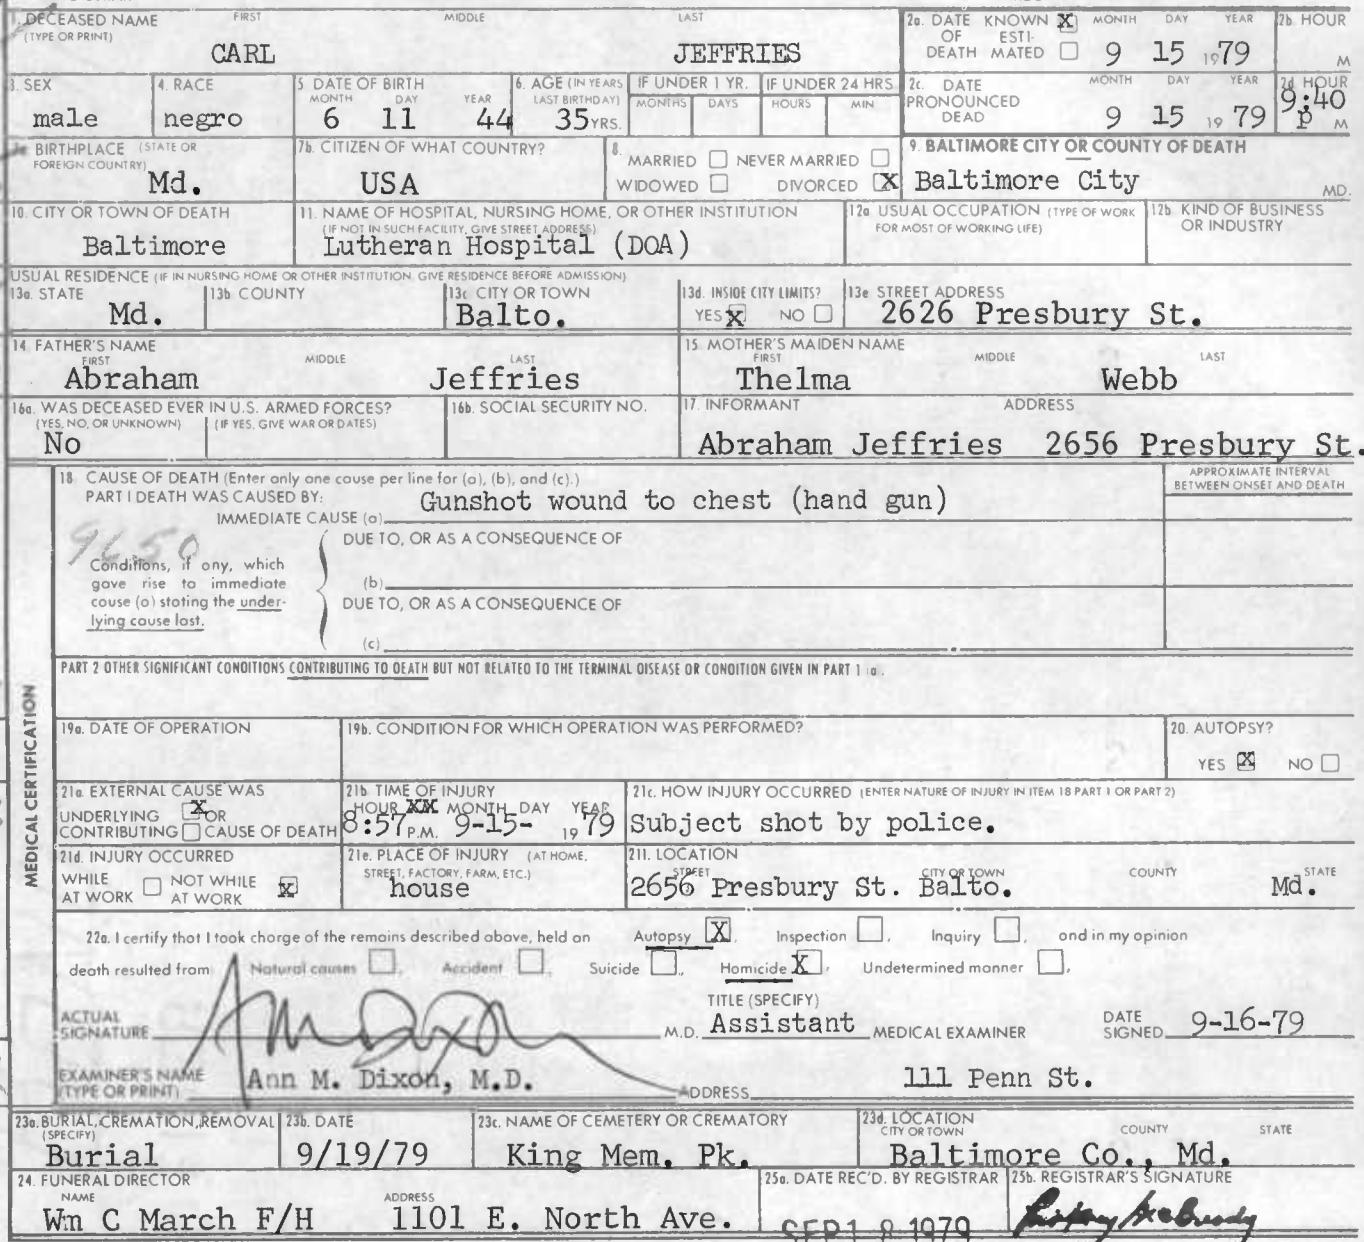 1. DECEASED NAME FIRST MIDDLE LAST
(TYPE OR PRINT)
CARL JEFFRIES
2a. DATE KNOWN X MONTH DAY YEAR
OF ESTI-
DEATH MATED 9 15 1979
2b. HOUR
M
3. SEX
male
4. RACE
negro
5 DATE OF BIRTH
MONTH DAY YEAR
6 11 44
6. AGE (IN YEARS
LAST BIRTHDAY)
35 YRS.
IF UNDER 1 YR.
MONTHS DAYS
IF UNDER 24 HRS
HOURS MIN
2c. DATE MONTH DAY YEAR
PRONOUNCED
DEAD 9 15 1979
2d HOUR
9:40
P M
BIRTHPLACE (STATE OR
FOREIGN COUNTRY)
Md.
7b. CITIZEN OF WHAT COUNTRY?
USA
8.
MARRIED NEVER MARRIED
WIDOWED DIVORCED X
9. BALTIMORE CITY OR COUNTY OF DEATH
Baltimore City
MD.
10. CITY OR TOWN OF DEATH
Baltimore
11. NAME OF HOSPITAL, NURSING HOME, OR OTHER INSTITUTION
(IF NOT IN SUCH FACILITY, GIVE STREET ADDRESS)
Lutheran Hospital (DOA)
12a USUAL OCCUPATION (TYPE OF WORK
FOR MOST OF WORKING LIFE)
12b. KIND OF BUSINESS
OR INDUSTRY
USUAL RESIDENCE (IF IN NURSING HOME OR OTHER INSTITUTION GIVE RESIDENCE BEFORE ADMISSION)
13a. STATE
Md.
13b COUNTY
13c CITY OR TOWN
Balto.
13d. INSIDE CITY LIMITS?
YES X NO
13e STREET ADDRESS
2626 Presbury St.
14. FATHER'S NAME
FIRST MIDDLE LAST
Abraham Jeffries
15. MOTHER'S MAIDEN NAME
FIRST MIDDLE LAST
Thelma Webb
16a. WAS DECEASED EVER IN U.S. ARMED FORCES?
(YES, NO, OR UNKNOWN) (IF YES, GIVE WAR OR DATES)
No
16b. SOCIAL SECURITY NO.
17. INFORMANT ADDRESS
Abraham Jeffries 2656 Presbury St.
MEDICAL CERTIFICATION
18 CAUSE OF DEATH (Enter only one cause per line for (a), (b), and (c).)
PART I DEATH WAS CAUSED BY:
IMMEDIATE CAUSE (a) Gunshot wound to chest (hand gun)
APPROXIMATE INTERVAL
BETWEEN ONSET AND DEATH
9650
Conditions, if any, which
gave rise to immediate
cause (a) stating the under-
lying cause last.
DUE TO, OR AS A CONSEQUENCE OF
(b)
DUE TO, OR AS A CONSEQUENCE OF
(c)
PART 2 OTHER SIGNIFICANT CONDITIONS CONTRIBUTING TO DEATH BUT NOT RELATED TO THE TERMINAL DISEASE OR CONDITION GIVEN IN PART 1 (a).
19a. DATE OF OPERATION
19b. CONDITION FOR WHICH OPERATION WAS PERFORMED?
20. AUTOPSY?
YES X NO
21a. EXTERNAL CAUSE WAS
UNDERLYING X OR
CONTRIBUTING CAUSE OF DEATH
21b TIME OF INJURY
HOUR XX MONTH DAY YEAR
8:57 P.M. 9-15- 1979
21c. HOW INJURY OCCURRED (ENTER NATURE OF INJURY IN ITEM 18 PART 1 OR PART 2)
Subject shot by police.
21d. INJURY OCCURRED
WHILE NOT WHILE
AT WORK AT WORK X
21e. PLACE OF INJURY (AT HOME,
STREET, FACTORY, FARM, ETC.)
house
21f. LOCATION
STREET CITY OR TOWN COUNTY STATE
2656 Presbury St. Balto. Md.
22a. I certify that I took charge of the remains described above, held an Autopsy X, Inspection, Inquiry, and in my opinion
death resulted from Natural causes, Accident, Suicide, Homicide X, Undetermined manner,
ACTUAL
SIGNATURE Ann M Dixon M.D.
TITLE (SPECIFY)
Assistant MEDICAL EXAMINER
DATE
SIGNED 9-16-79
EXAMINER'S NAME
(TYPE OR PRINT) Ann M. Dixon, M.D.
ADDRESS 111 Penn St.
23a. BURIAL, CREMATION, REMOVAL
(SPECIFY)
Burial
23b. DATE
9/19/79
23c. NAME OF CEMETERY OR CREMATORY
King Mem. Pk.
23d. LOCATION
CITY OR TOWN COUNTY STATE
Baltimore Co., Md.
24. FUNERAL DIRECTOR
NAME ADDRESS
Wm C March F/H 1101 E. North Ave.
25a. DATE REC'D. BY REGISTRAR
SEP 18 1979
25b. REGISTRAR'S SIGNATURE